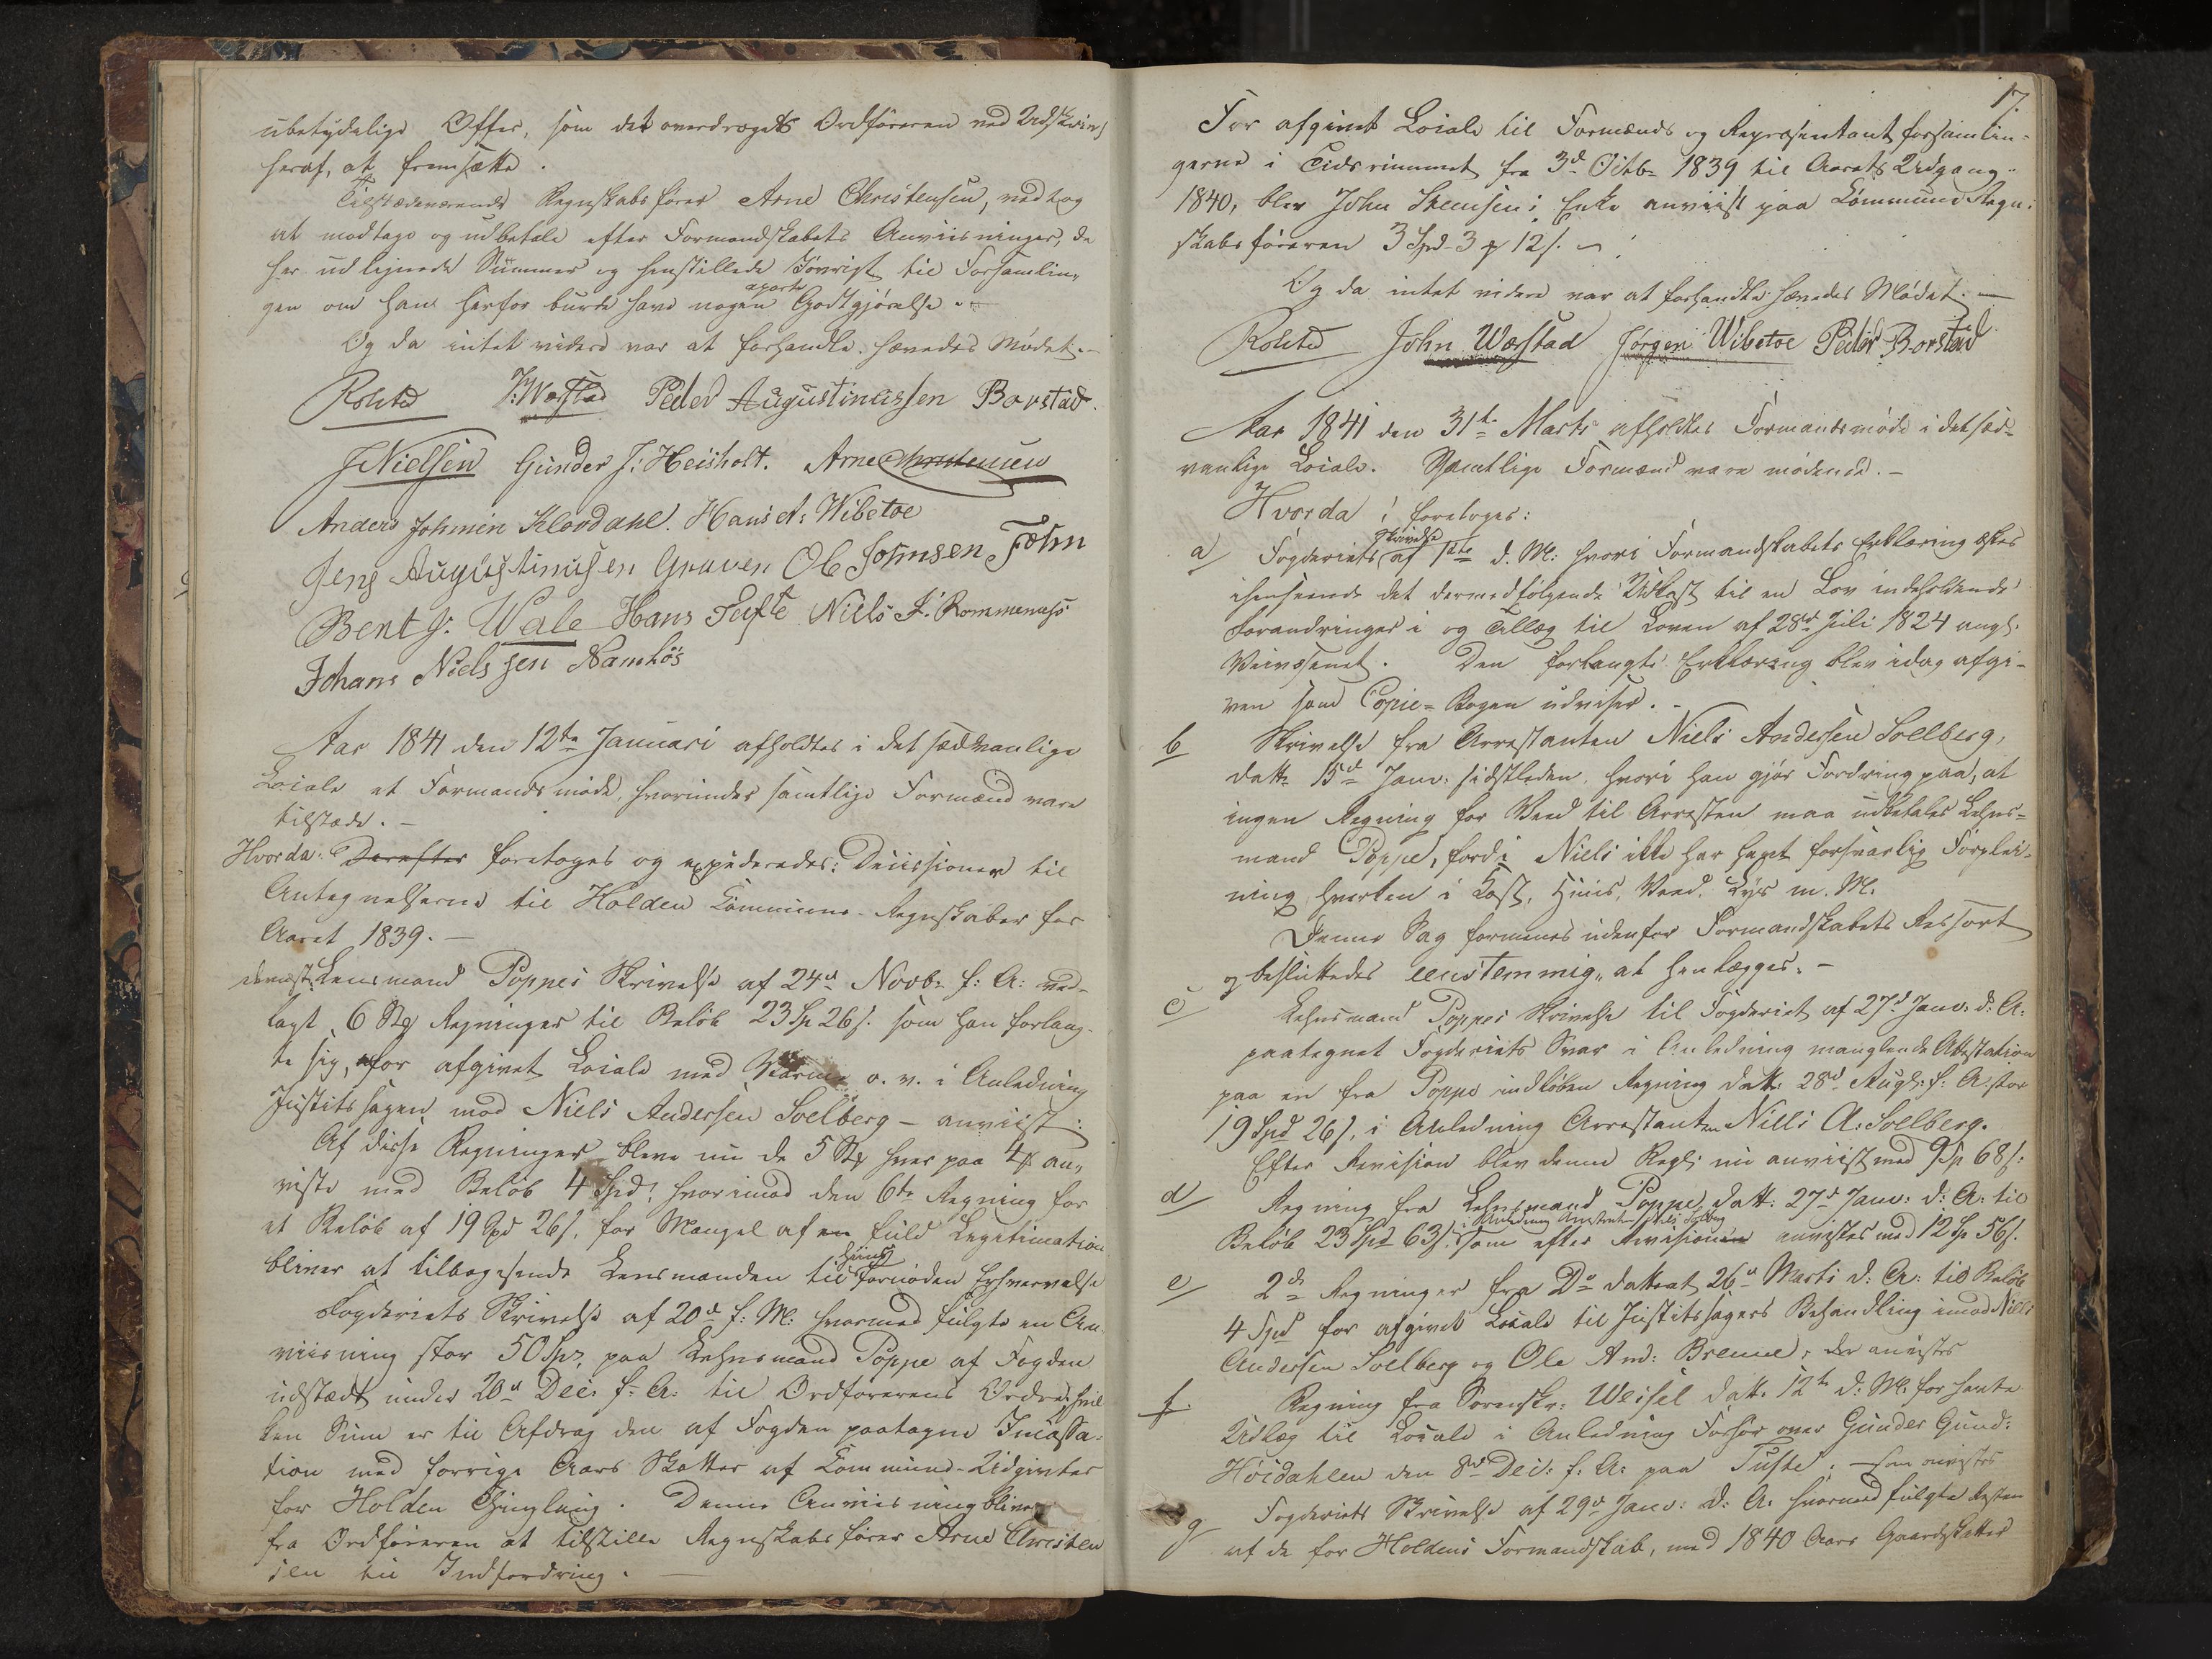 ubetydelige Offer, som det overdroges Ordføreren ved Udskrivt
heraf, at fremsætte.
Tilstædeværende Regnskabsfører Arne Christensen, vedtog
at modtage og udbetale efter Formandskabets Anviisninger, de
her udlignede Summer og henstillede iøvrigt til Forsamlin„
gen om han herfor burde have nogen aparte Godtgjørelse.
Og da intet videre var at forhandle, hævedes Mødet.
Rolsted J: Wærstad Peder Augustinussen Borstad.
J Nielsen Gunder J: Heisholt. Arne Christensen
Anders Johnsen Klovdahl. Hans A: Wibetoe
Jens Augustinusen Graven Ole Johnsen Fæhn
Bent J. Wale Hans Tufte Niels J: Rommenæss
Johans Nielssen Namløs
Aar 1841 den 12te Januari afholdtes i det sædvanlige
Locale et Formandsmøde, hvorunder samtlige Formænd vare
tilstæde. –
Hvorda: Derefter foretoges og expederedes: Decissioner til
Antegnelserne til Holden Commune-Regnskaber for
Aaret 1839. –
dernæst Lensmand Poppes Skrivelse af 24d Novbr f: A: ved-
lagt 6 Stk Regninger til Beløb 23 Sp 26 s. som han forlang-
te sig, for afgivet Locale med Varme o. v. i Anledning
Justitssagen mod Niels Andersen Solberg – anviist:
Af disse Regninger bleve nu de 5 Stk hver paa 4 an„
viste med Beløb 4 Spd, hvorimod den 6te Regning for
et Beløb af 19 Spd 26 s. for Mangel af en fuld Legitimation
bliver at tilbagesende Lensmanden til fornøden Erhvervelse
Fogderiets Skrivelse af 20d f: M: hvormed fulgte en An-
viisning stor 50 Spd, paa Lehnsmand Poppe af Fogden
udstædt under 20d Dec: f: A: til Ordførerens Ordre, hvil
ken Sum er til Afdrag den af Fogden paatagne Incassa-
tion med forrige Aars Skatter af Commune-Udgivter
for Holden Thinglaug. Denne Anviisning bliver
fra Ordføreren at tilstille Regnskabsfører Arne Christen
sen til Indfordring. –
17.
For afgivet Locale til Formænds og Repræsentantforsamlin-
gerne i Tidsrummet fra 3d Octbr 1839 til Aarets Udgang
1840, blev John Stensens Enke anviist paa Commune Regn-
skabsføreren 3 Spd 3 12 s.
Og da intet videre var at forhandle hævedes Mødet. –
Rolsted John Wærstad Jørgen Wibetoe Peder Borstad
Aar 1841 den 31te Marts afholdtes Formandsmøde i det sæd-
vanlige Locale. Samtlige Formænd vare mødende. –
Hvorda foretoges:
a/ Fogderiets Skrivelse af 1ste d. M: hvori Formandskabets Erklæring æskes
ihenseende det dermedfølgende Udkast til en Lov indeholdende
Forandringer i og Tillæg til Loven af 28de Juli 1824 ang:
Veivæsenet. Den forlangte Erklæring blev idag afgi-
ven som Copie-Bogen udviser. –
b Skrivelse fra Arrestanten Niels Andersen Solberg,
datt. 15d Janv: sidstleden, hvori han gjør Fordring paa, at
ingen Regning for Veed til Arresten maa udbetales Lehns-
mand Poppe, fordi Niels ikke har havt forsvarlig Forplei-
ning hverken i Kost, Huus, Veed, Lys m. M.
Denne Sag formenes udenfor Formandskabets Ressort
og besluttedes eenstemmig at henlægges. –
c/ Lehnsmand Poppes Skrivelse til Fogderiet af 27d Janv: d: A:
paategnet Fogderiets Svar i Anledning manglende Attestation
paa en fra Poppe indløben Regning datt: 28d Aug: f: A. stor
19 Spd 26 s. i Anledning Arrestanten Niels A: Solberg.
Efter Revision blev denne Regl: nu anviist med 9 Sp 68 s.
d/ Regning fra Lehnsmand Poppe datt: 27d Janv: d: A: til
Beløb 23 Spd 63 s. i Anledning Arrestanten Niels Solberg som efter Revisionen anvistes med 12 Sp 56 s.
e/ 2de Regninger fra Do datteret 26d Marts d: A: til Beløb
4 Spd for afgivet Locale til Justitssagers Behandling imod Niels
Andersen Solberg og Ole And: Brenne, der anvistes
f. Regning fra Sorenskr: Weisel datt. 12te d: M: for havte
Udlæg til Locale i Anledning Forhør over Gunder Gund:
Høidahlen den 8d Dec: f: A: paa Tufte. – som anvistes
g Fogderiets Skrivelse af 29d Janv: d: A: hvormed fulgte Resten
af de for Holdens Formandskab, med 1840 Aars Gaardskatter